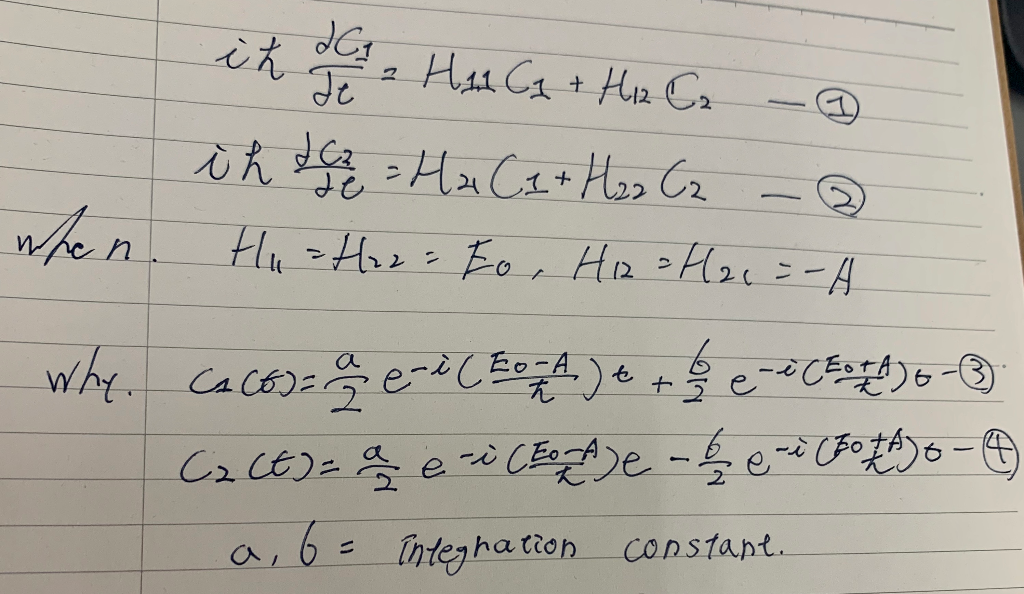 iħ dC₁/dt = H₁₁ C₁ + H₁₂ C₂ — ①
iħ dC₂/dt = H₂₁ C₁ + H₂₂ C₂ — ②
when. H₁₁ = H₂₂ = E₀, H₁₂ = H₂₁ = -A
Why. C₁(t) = a/2 e^{-i((E₀-A)/ħ)t} + b/2 e^{-i((E₀+A)/ħ)t} - ③
C₂(t) = a/2 e^{-i((E₀-A)/ħ)t} - b/2 e^{-i((E₀+A)/ħ)t} - ④
a, b = integration constant.